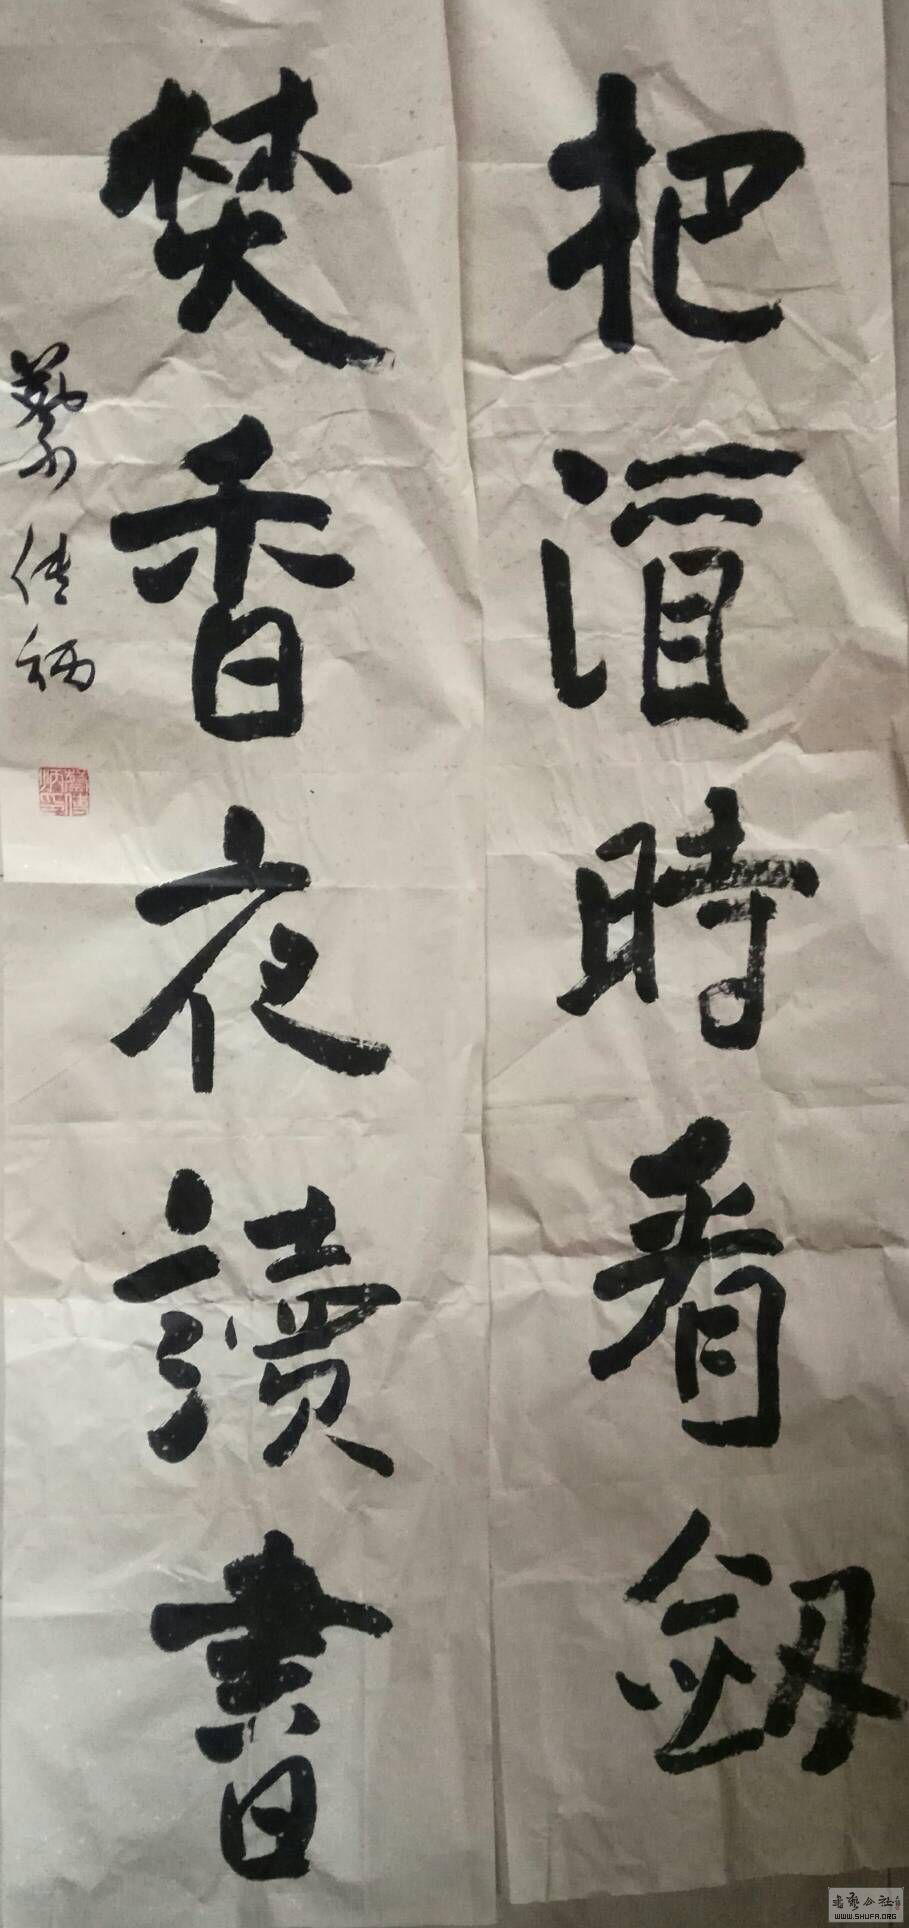 把酒時看劒
焚香夜讀書
書藝公社
WWW.SHUFA.ORG